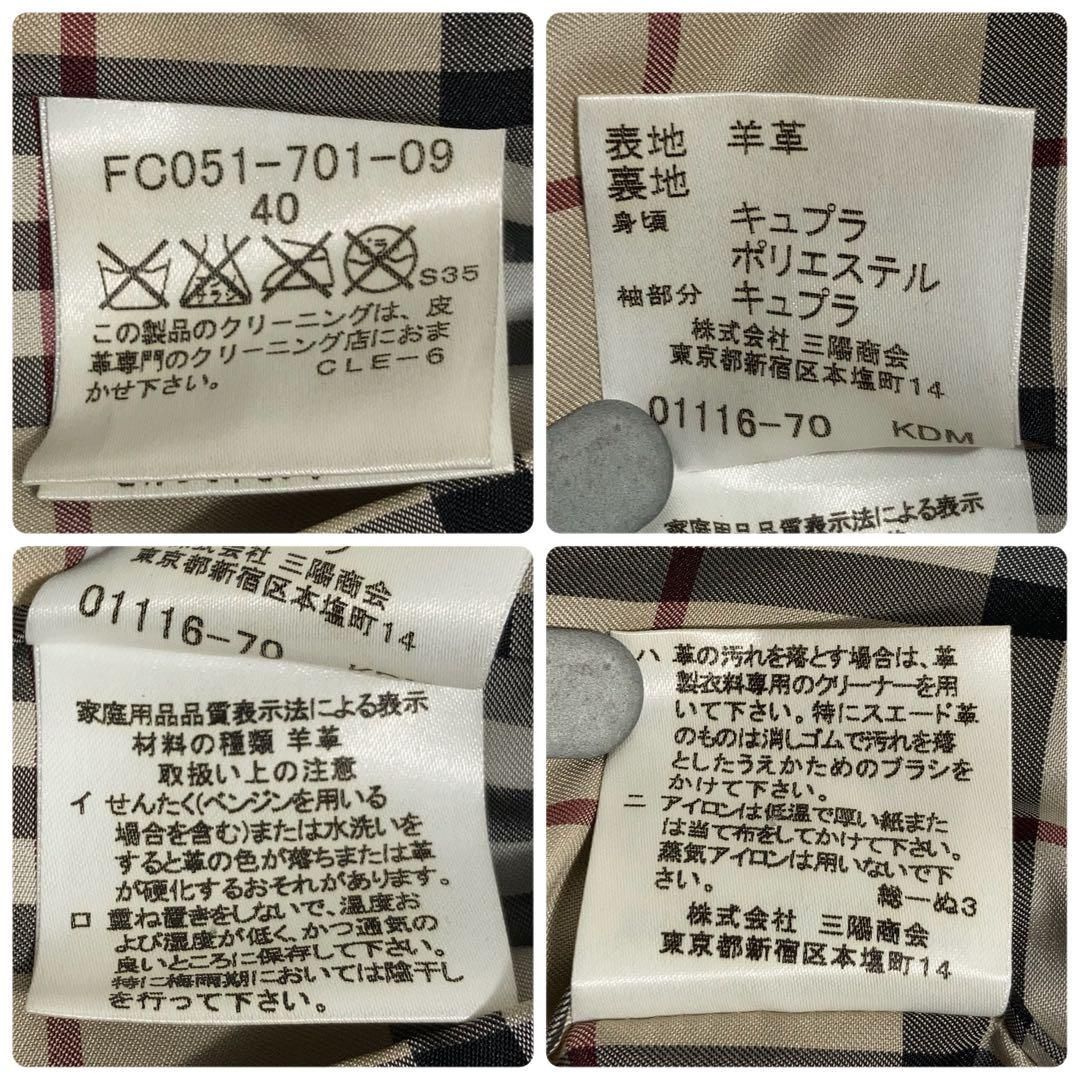 FC051-701-09
40
エンソ
サラシ
ドライ
S35
この製品のクリーニングは、皮
革専門のクリーニング店におま
かせ下さい。
CLE-6
表地 羊革
裏地
身頃 キュプラ
ポリエステル
袖部分 キュプラ
株式会社 三陽商会
東京都新宿区本塩町14
01116-70 KDM
家庭用品品質表示法による表示
株式会社 三陽商会
東京都新宿区本塩町14
01116-70
家庭用品品質表示法による表示
材料の種類 羊革
取扱い上の注意
イ せんたく(ベンジンを用いる
場合を含む)または水洗いを
すると革の色が落ちまたは革
が硬化するおそれがあります。
ロ 重ね置きをしないで、温度お
よび湿度が低く、かつ通気の
良いところに保存して下さい。
特に梅雨期においては陰干し
を行って下さい。
ハ 革の汚れを落とす場合は、革
製衣料専用のクリーナーを用
いて下さい。特にスエード革
のものは消しゴムで汚れを落
としたうえかためのブラシを
かけて下さい。
ニ アイロンは低温で厚い紙また
は当て布をしてかけて下さい。
蒸気アイロンは用いないで下
さい。
総一ぬ3
株式会社 三陽商会
東京都新宿区本塩町14